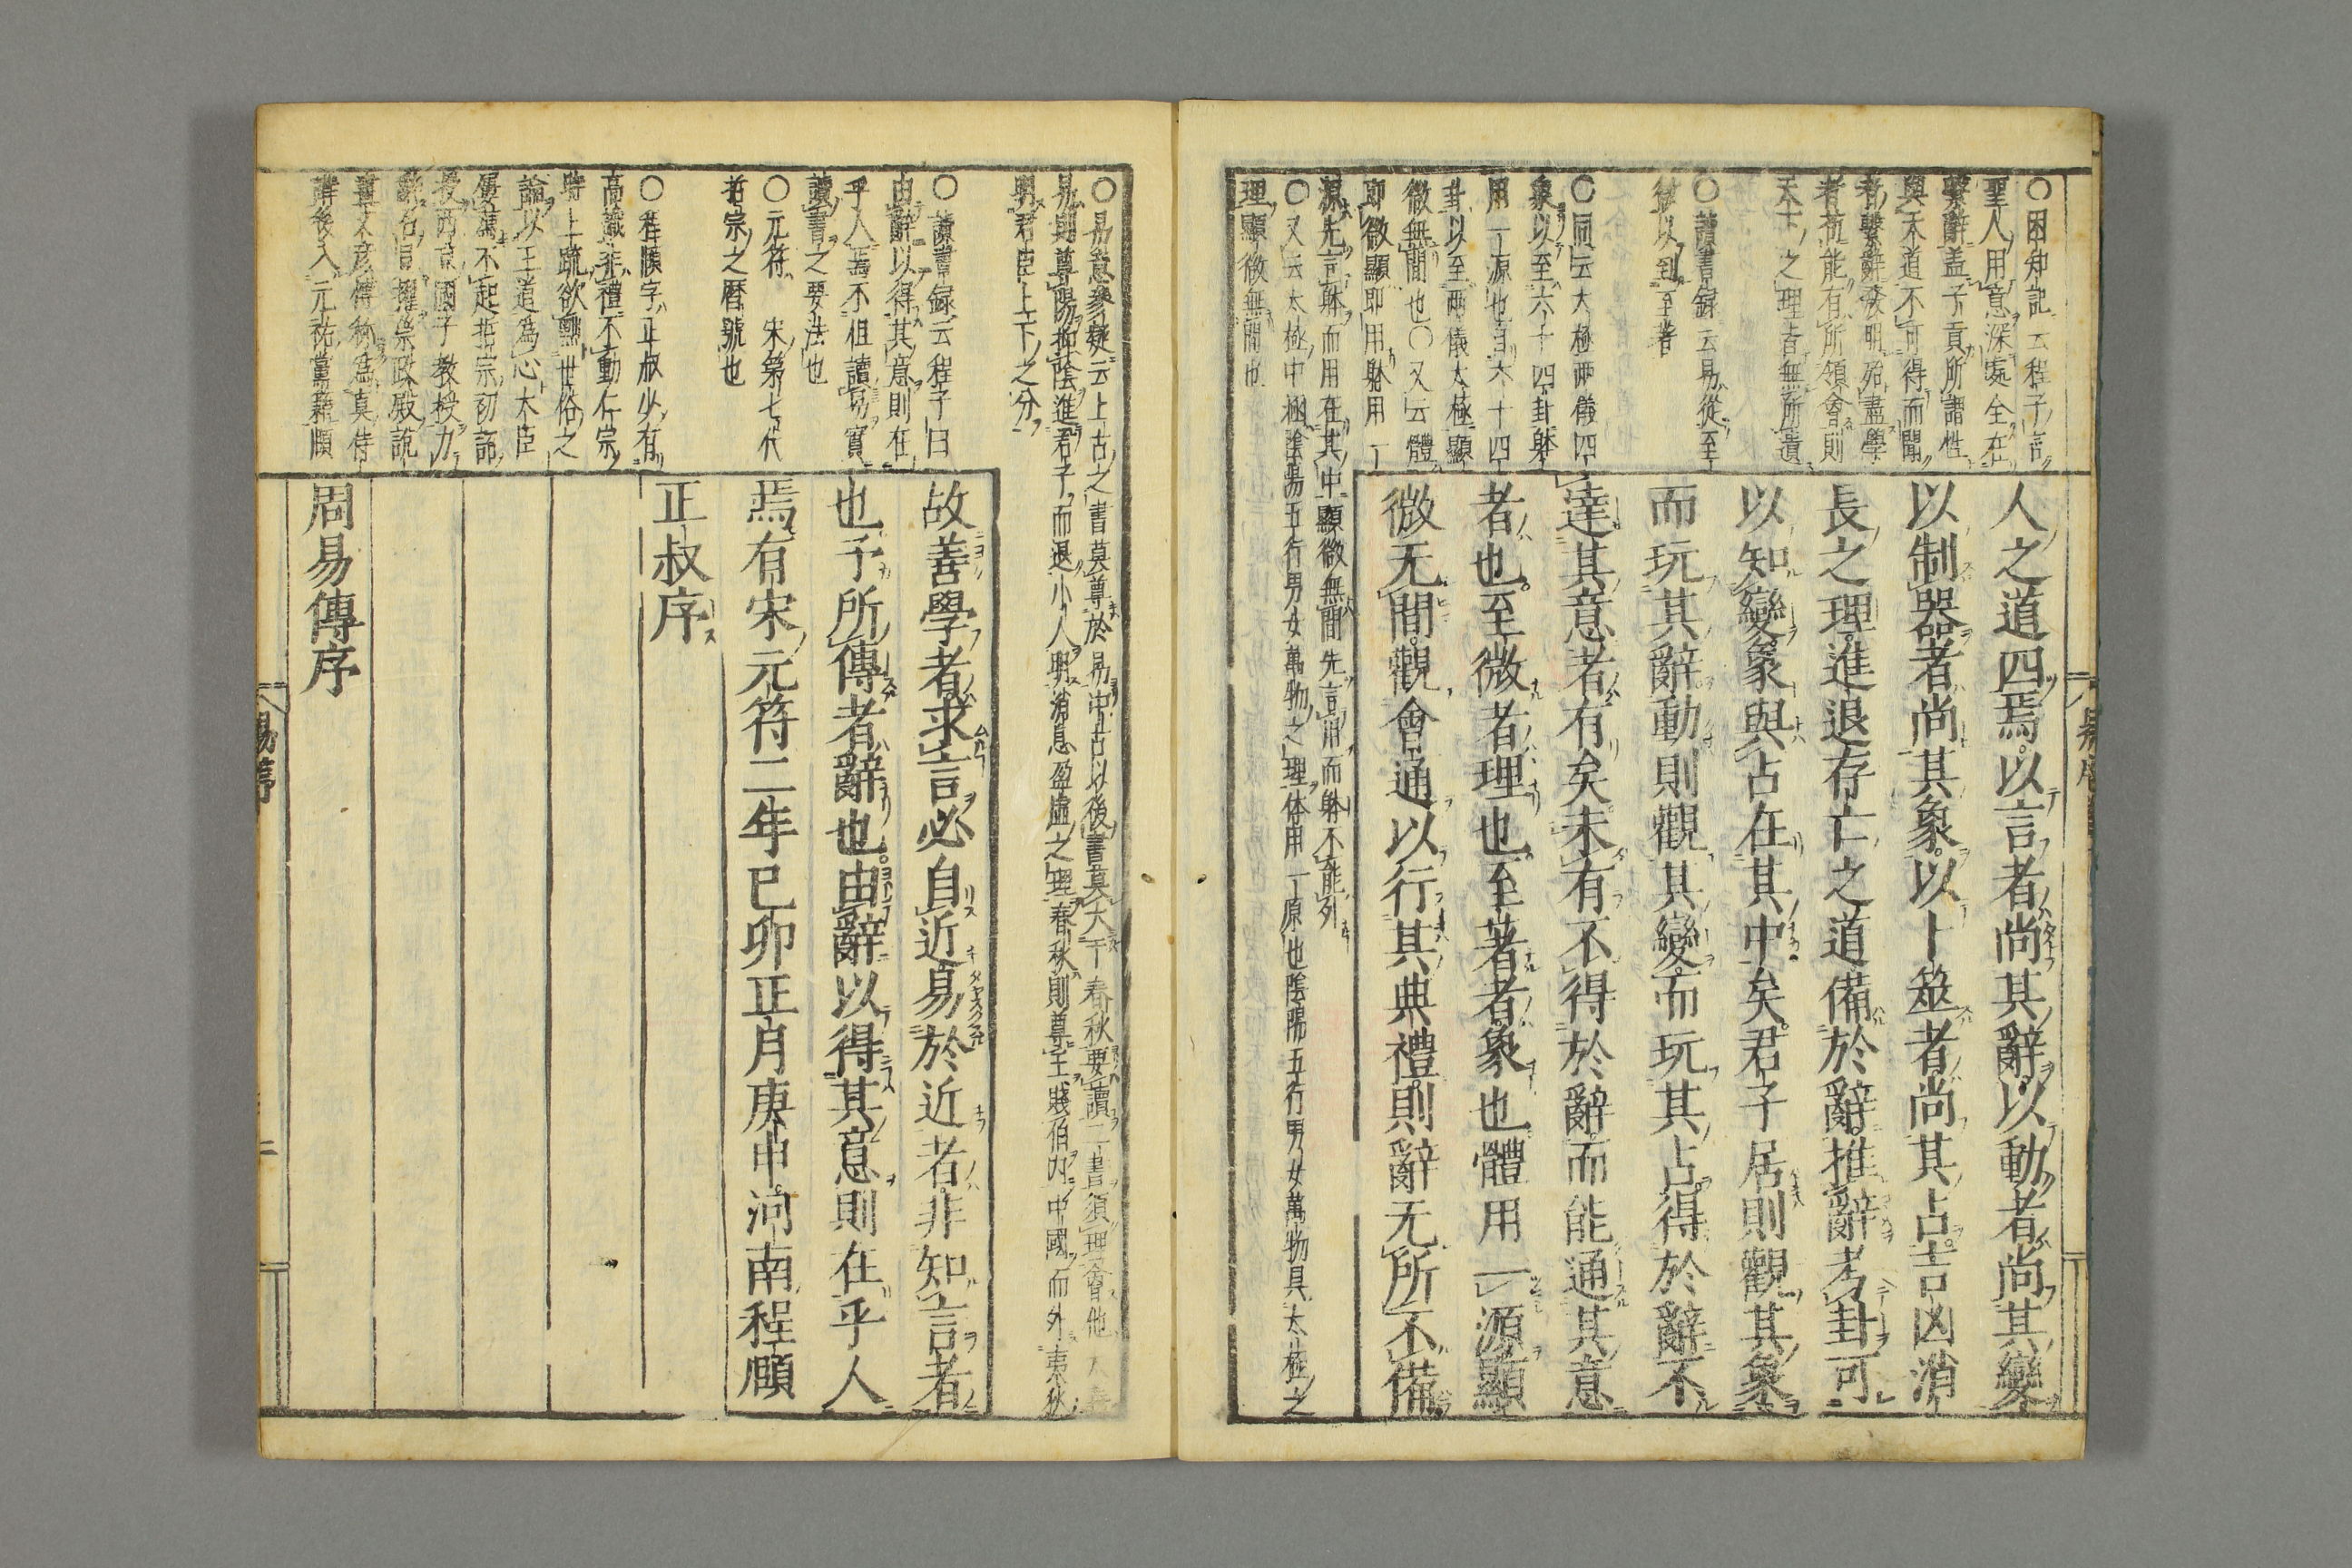 人之道四焉以言者尚其辭以動者尚其變
以制器者尚其象以卜筮者尚其占吉凶消
長之理進退存亡之道備於辭推辭考卦可
以知變象與占在其中矣君子居則觀其象
而玩其辭動則觀其變而玩其占得於辭不
達其意者有矣未有不得於辭而能通其意
者也至微者理也至著者象也體用一源顯
微无間觀會通以行其典禮則辭无所不備
○困知記云程子言
聖人用意深處全在
繫辭蓋子貢所謂性
與天道不可得而聞
者繫辭發明殆盡學
者苟能有所領會則
天下之理皆無所遺
○讀書録云易從至
微以到至著
○同云大極兩儀四
象以至六十四卦躰
用一源也自六十四
卦以至兩儀太極顯
微無間也○又云體
即微顯即用躰用一
源先言躰而用在其中顯微無間先言用而躰不能列
○又云太極中涵陰陽五行男女萬物之理体用一原也陰陽五行男女萬物具太極之
理顯微無間也
○易意參疑云上古之書莫尊於易中古以後書莫大于春秋要讀二書須理會他
易則尊陽抑陰進君子而退小人明消息盈虛之理春秋則尊王賤伯内中國而外夷狄
明君臣上下之分
故善學者求言必自近易於近者非知言者
也予所傳者辭也由辭以得其意則在乎人
焉有宋元符二年已卯正月庚申河南程頤
正叔序
周易傳序
○讀書録云程子曰
由辭以得其意則在
乎人焉不但讀易實
讀書之要法也
○元符 宋第七代
哲宗之暦號也
○程頤字正叔少有
高識非禮不動仁宗
時上疏欲黜世俗之
論以王道為心大臣
屢薦不起哲宗初詔
授西京國子教授力
辭名自擢崇政殿説
易序
二